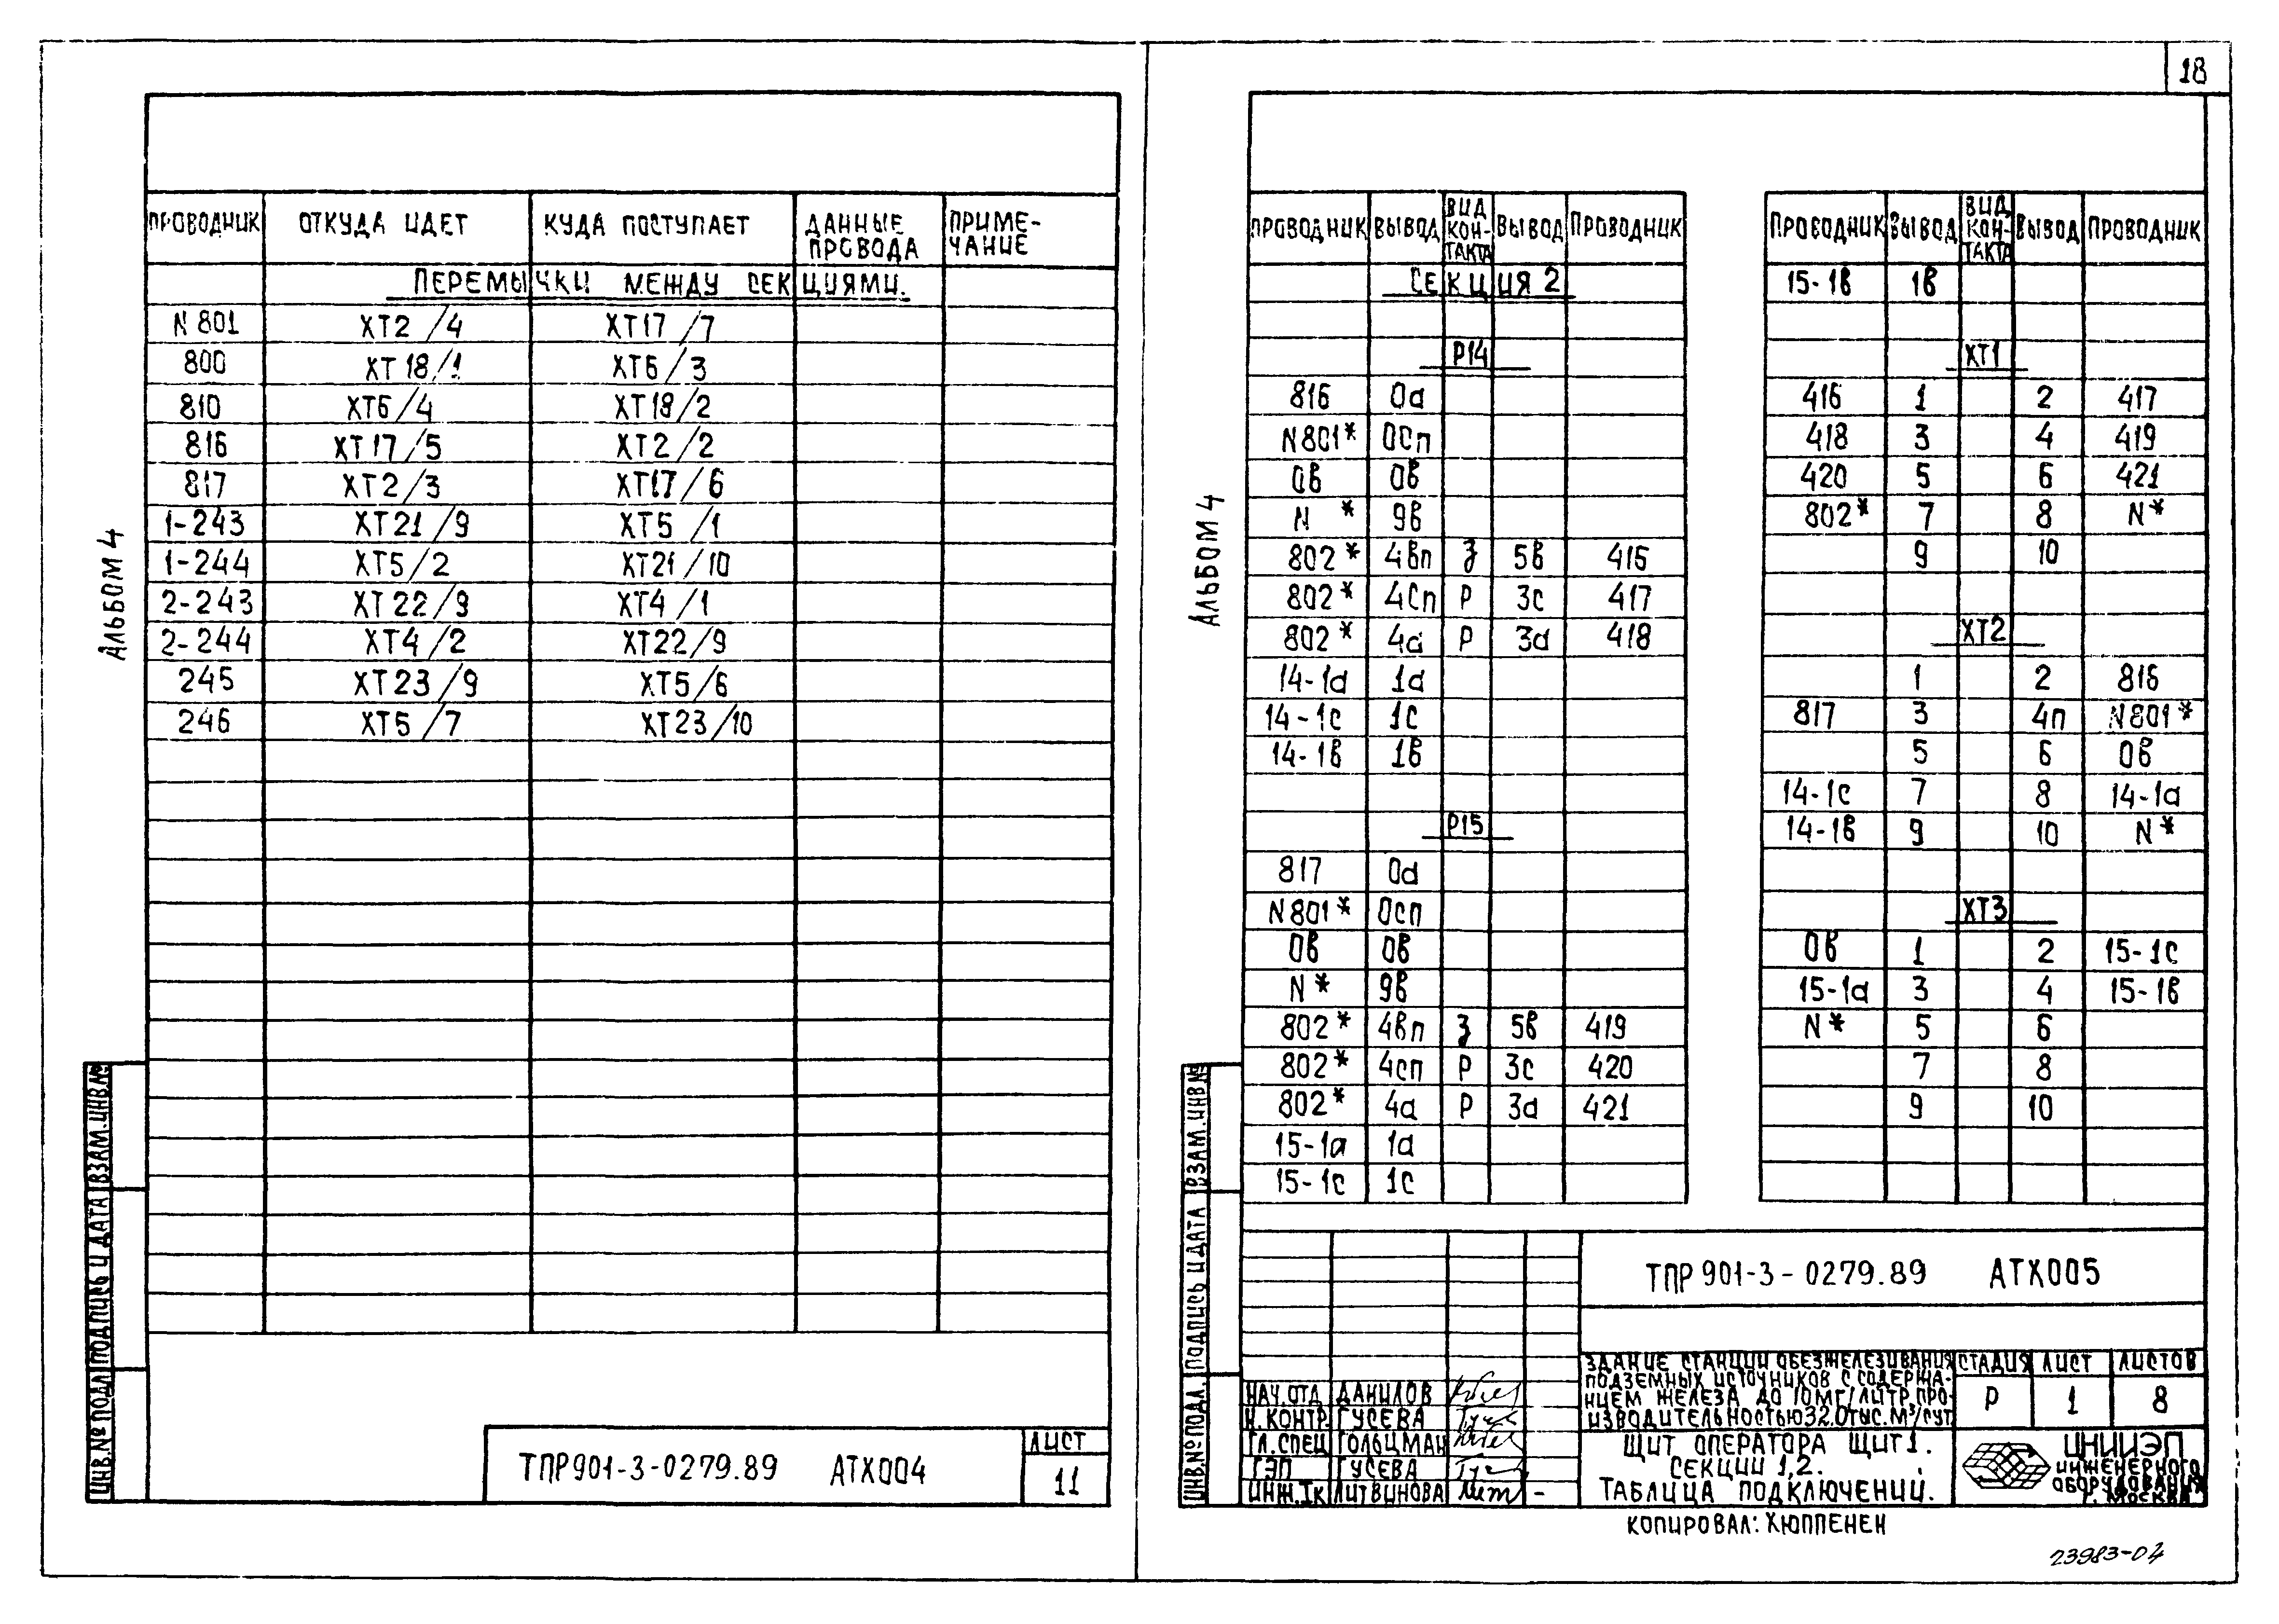 18
АЛЬБОМ 4
ПРОВОДНИК ОТКУДА ИДЕТ КУДА ПОСТУПАЕТ ДАННЫЕ ПРОВОДА ПРИМЕ-ЧАНИЕ
ПЕРЕМЫЧКИ МЕЖДУ СЕКЦИЯМИ.
N 801 ХТ2/4 ХТ17/7
800 ХТ18/1 ХТ6/3
810 ХТ6/4 ХТ18/2
816 ХТ17/5 ХТ2/2
817 ХТ2/3 ХТ17/6
1-243 ХТ21/9 ХТ5/1
1-244 ХТ5/2 ХТ21/10
2-243 ХТ22/9 ХТ4/1
2-244 ХТ4/2 ХТ22/9
245 ХТ23/9 ХТ5/6
246 ХТ5/7 ХТ23/10
ИНВ.№ ПОДЛ ПОДПИСЬ И ДАТА ВЗАМ.ИНВ.№
ТПР 901-3-0279.89 АТХ004
ЛИСТ
11
АЛЬБОМ 4
ПРОВОДНИК ВЫВОД ВИД КОН-ТАКТА ВЫВОД ПРОВОДНИК
СЕКЦИЯ 2
Р14
816 0а
N801* 0сп
0в 0в
N * 9в
802* 4вп З 5в 416
802* 4сп Р 3с 417
802* 4а Р 3а 418
14-1а 1а
14-1с 1с
14-1в 1в
Р15
817 0а
N801* 0сп
0в 0в
N* 9в
802* 4вп З 5в 419
802* 4сп Р 3с 420
802* 4а Р 3а 421
15-1а 1а
15-1с 1с
ПРОВОДНИК ВЫВОД ВИД КОН-ТАКТА ВЫВОД ПРОВОДНИК
15-1в 1в
ХТ1
416 1 2 417
418 3 4 419
420 5 6 421
802* 7 8 N*
9 10
ХТ2
1 2 816
817 3 4п N801*
5 6 0в
14-1с 7 8 14-1а
14-1в 9 10 N*
ХТ3
0в 1 2 15-1с
15-1а 3 4 15-1в
N* 5 6
7 8
9 10
ИНВ.№ ПОДЛ. ПОДПИСЬ И ДАТА ВЗАМ.ИНВ.№
ТПР 901-3-0279.89 АТХ005
ЗДАНИЕ СТАНЦИИ ОБЕЗЖЕЛЕЗИВАНИЯ
ПОДЗЕМНЫХ ИСТОЧНИКОВ С СОДЕРЖА-
НИЕМ ЖЕЛЕЗА ДО 10МГ/ЛИТР, ПРО-
ИЗВОДИТЕЛЬНОСТЬЮ 32.0ТЫС.М³/СУТ
СТАДИЯ ЛИСТ ЛИСТОВ
Р 1 8
НАЧ.ОТД ДАНИЛОВ
Н.КОНТР. ГУСЕВА
ГЛ.СПЕЦ ГОЛЬЦМАН
ГЭП ГУСЕВА
ИНЖ.1К ЛИТВИНОВА -
ЩИТ ОПЕРАТОРА ЩИТ1.
СЕКЦИИ 1,2.
ТАБЛИЦА ПОДКЛЮЧЕНИЙ.
ЦНИИЭП
ИНЖЕНЕРНОГО
ОБОРУДОВАНИЯ
Г. МОСКВА
КОПИРОВАЛ: ХЮППЕНЕН
23983-04